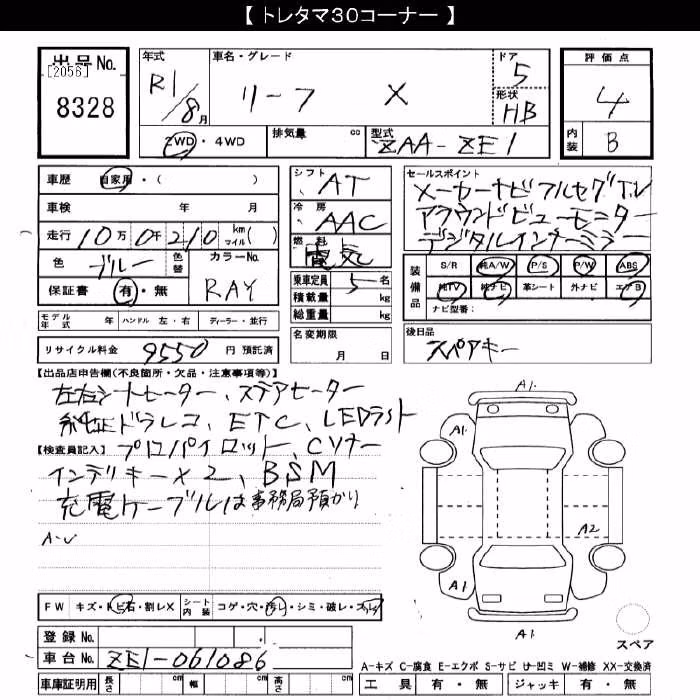 【 トレタマ30コーナー 】
出品No.
[2056]
8328
年式
R1/8月
車名・グレード
リーフ X
ドア
5
形状
HB
評価点
4
内装
B
2WD・4WD
排気量 cc
型式
ZAA-ZE1
車歴 自家用・( )
車検 年 月
走行 10万 0千 210 km マイル( )
色 ブルー 色替
カラーNo.
RAY
保証書 有・無
シフト AT
冷房 AAC
燃料 電気
乗車定員 5 名
積載量 kg
総重量 kg
セールスポイント
メーカーナビ フルセグTV
アラウンドビューモニター
デジタルインナーミラー
装備品
S/R 純A/W P/S P/W ABS
純TV 純ナビ 革シート 外ナビ エアB
ナビ型番:
モデル年式 年 ハンドル 左・右 ディーラー・並行
リサイクル料金 9550 円 預託済
名変期限
月 日
後日品
スペアキー
【出品店申告欄(不良箇所・欠品・注意事項等)】
左右シートヒーター、ステアヒーター
純正ドラレコ、ETC、LEDライト
【検査員記入】
プロパイロット、Cソナー
インテリキー×2、BSM
充電ケーブルは事務局預かり
A-U
FW キズ・トビ石・割レX
シート内装 コゲ・穴・汚レ・シミ・破レ・スレ
登録No.
車台No. ZE1-061086
車庫証明用 長さ cm 幅 cm 高さ cm
A1
A1
A2
A1
A1
スペア
A-キズ C-腐食 E-エクボ S-サビ U-凹ミ W-補修 XX-交換済
工具 有・無 ジャッキ 有・無